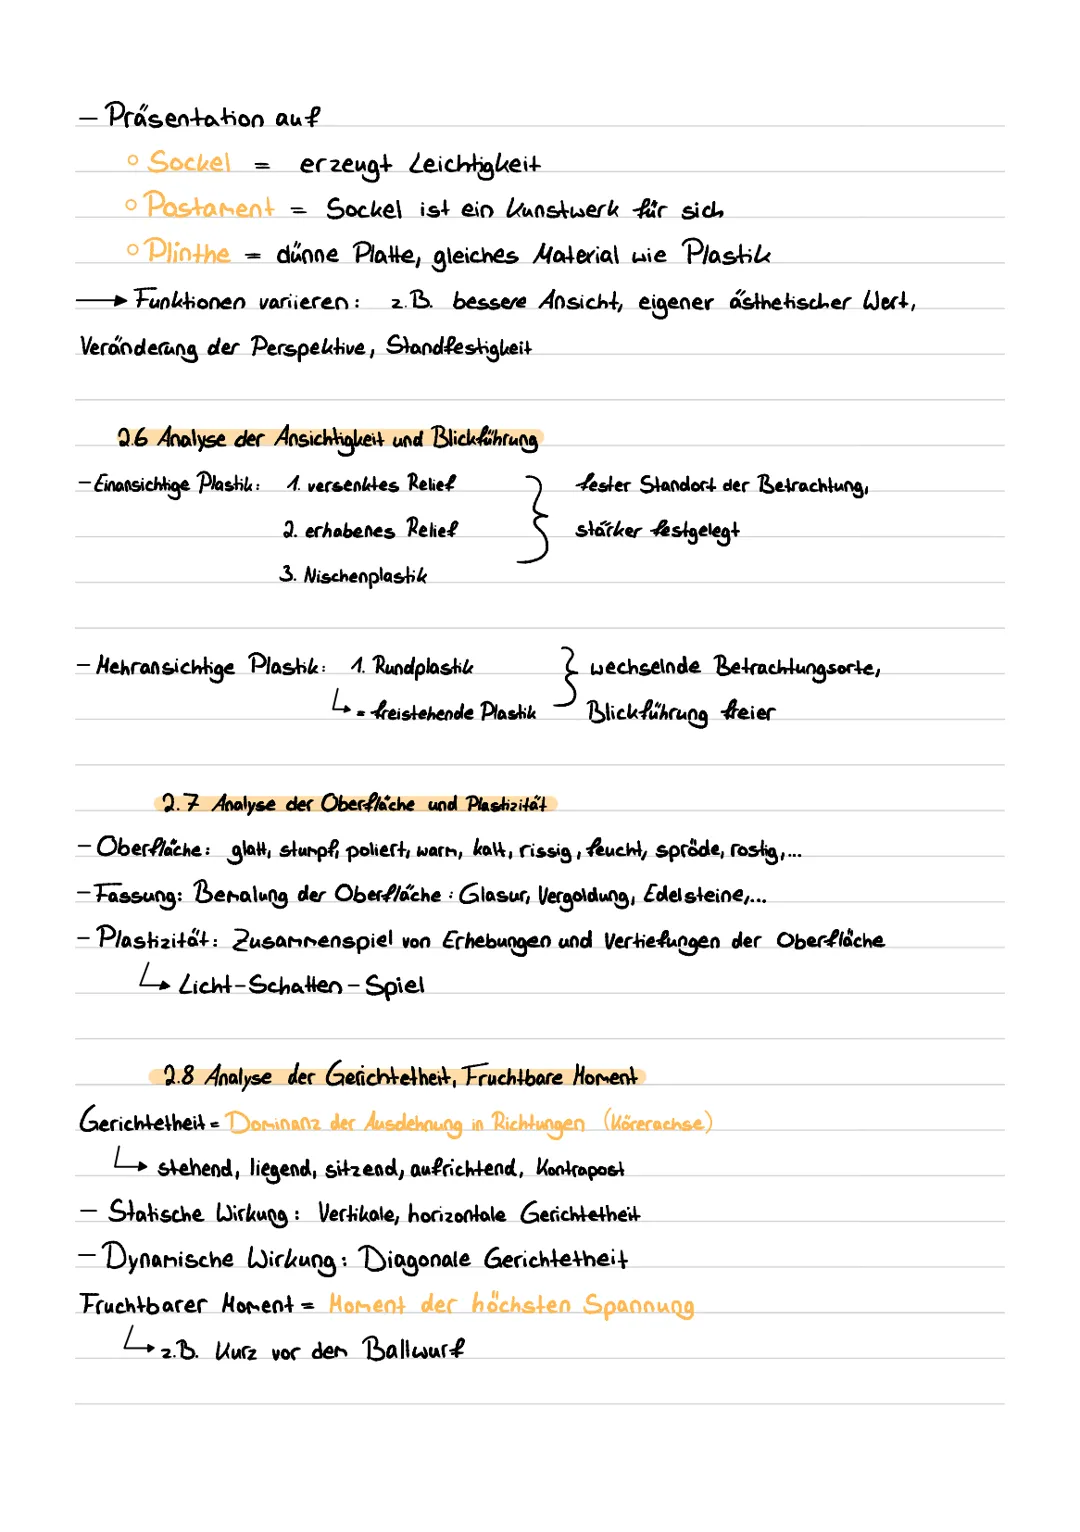 – Präsentation auf
◦ Sockel = erzeugt Leichtigkeit
◦ Postament = Sockel ist ein Kunstwerk für sich
◦ Plinthe = dünne Platte, gleiches Material wie Plastik
→ Funktionen variieren: z.B. bessere Ansicht, eigener ästhetischer Wert,
Veränderung der Perspektive, Standfestigkeit
2.6 Analyse der Ansichtigkeit und Blickführung
– Einansichtige Plastik: 1. versenktes Relief } fester Standort der Betrachtung,
2. erhabenes Relief stärker festgelegt
3. Nischenplastik
– Mehransichtige Plastik: 1. Rundplastik } wechselnde Betrachtungsorte,
↳ = freistehende Plastik Blickführung freier
2.7 Analyse der Oberfläche und Plastizität
– Oberfläche: glatt, stumpf, poliert, warm, kalt, rissig, feucht, spröde, rostig,...
– Fassung: Bemalung der Oberfläche: Glasur, Vergoldung, Edelsteine,...
– Plastizität: Zusammenspiel von Erhebungen und Vertiefungen der Oberfläche
↳ Licht-Schatten-Spiel
2.8 Analyse der Gerichtetheit, Fruchtbare Moment
Gerichtetheit = Dominanz der Ausdehnung in Richtungen (Körerachse)
↳ stehend, liegend, sitzend, aufrichtend, Kontrapost
– Statische Wirkung: Vertikale, horizontale Gerichtetheit
– Dynamische Wirkung: Diagonale Gerichtetheit
Fruchtbarer Moment = Moment der höchsten Spannung
↳ z.B. Kurz vor dem Ballwurf